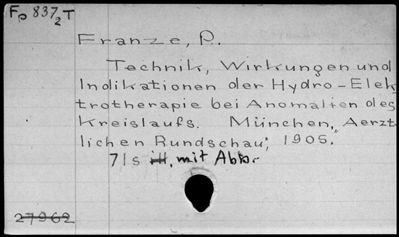 Fp 837/2 T
Franze, P.
Technik, Wirkungen und
Indikationen der Hydro-Elek
trotherapie bei Anomalien des
Kreislaufs. München, „Aerzt
lichen Rundschau", 1905.
71 s ill. mit Abb.
27962